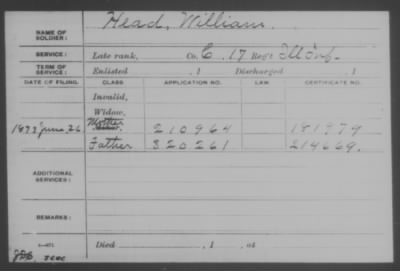 Head, William.
NAME OF SOLDIER:
SERVICE: Late rank, Co. C, 17 Reg't Ill Inf.
TERM OF SERVICE: Enlisted , 1 Discharged , 1
DATE OF FILING. CLASS. APPLICATION NO. LAW. CERTIFICATE NO.
Invalid,
Widow,
June, 26. Mother 210964 181979
Father 320261 214669.
ADDITIONAL SERVICES:
REMARKS:
Died , 1 , at